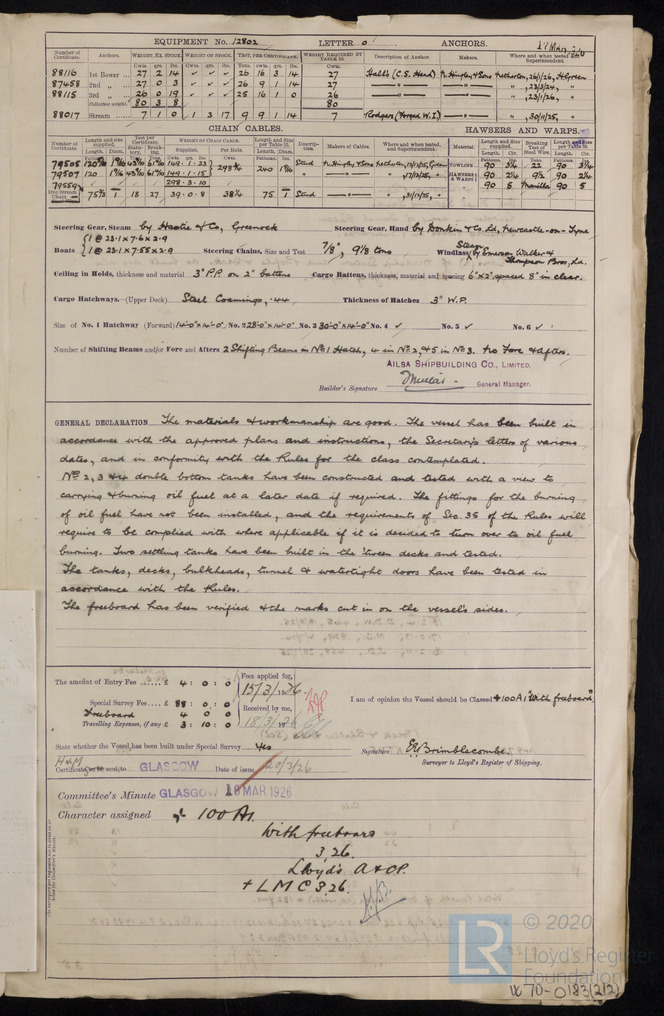 EQUIPMENT No. 12802 LETTER O ANCHORS.
Number of Certificate. Anchors. WEIGHT, EX. STOCK. WEIGHT OF STOCK. TEST, PER CERTIFICATE. WEIGHT REQUIRED BY TABLE 22. Description of Anchor. Makers. Where and when tested and Superintendent.
Cwts. qrs. lbs. Cwts. qrs. lbs. Tons. cwts. qrs. lbs. Cwts.
88116 1st Bower 27 2 14 ✓ ✓ ✓ 26 16 3 14 27 Hall's (C.S. Head) N. Hingley & Sons Netherton, 26/1/26, H. Green
87458 2nd „ 27 0 3 ✓ ✓ ✓ 26 9 1 14 27 „ , 23/3/24, „
88115 3rd „ 26 0 19 ✓ ✓ ✓ 25 16 1 0 26 „ , 23/1/26, „
Collective weight 80 3 8 80
88017 Stream 7 1 0 1 3 17 9 9 1 14 7 Rodgers (Forged W.I) „ , 30/11/25, „
CHAIN CABLES. HAWSERS AND WARPS.
Number of Certificate. Length and size supplied. Test per Certificate. WEIGHT OF CHAIN CABLE. Length and Size per Table 22. Description Makers of Cables. Where and when tested, and Superintendent. Material. Length and size supplied. Breaking Test of Steel Wire. Length and Size per Table 22.
Supplied. Per Rule.
79505 120
79507 120 149 - 1 - 15
79559 298 - 3 - 10
Stream Chain 75 1 18 27 39 - 0 - 8 38¼ 75 1 Stud „ , 31/12/25, „
TOWLINE 90 3¼ 22 90 3¼
HAWSERS & WARPS 90 2¼ 9½ 90 2¼
90 5 Manilla 90 5
Steering Gear, Steam by Hastie & Co, Greenock Steering Gear, Hand by Donkin & Co Ld, Newcastle-on-Tyne
Boats { 1 @ 23·1 x 7·6 x 2·9
1 @ 23·1 x 7·55 x 2·9 Steering Chains, Size and Test 7/8", 9 1/8 tons Steam Windlass, by Emerson Walker & Thompson Bros, Ld.
Ceiling in Holds, thickness and material 3" P.P. on 2" battens Cargo Battens, thickness, material and spacing 6" x 2" spaced 8" in clear.
Cargo Hatchways.—(Upper Deck) Steel Coamings, ·44 Thickness of Hatches 3" W.P.
Size of No. 1 Hatchway (Forward) 14'-0" x 14'-0" No. 2 28'-0" x 14'-0" No. 3 30'-0" x 14'-0" No. 4 ✓ No. 5 ✓ No. 6 ✓
Number of Shifting Beams and/or Fore and Afters 2 Shifting Beams in No 1 Hatch, 4 in No 2, & 5 in No 3. No Fore & Afters.
AILSA SHIPBUILDING CO., LIMITED.
Builder's Signature General Manager.
GENERAL DECLARATION The materials & workmanship are good. The vessel has been built in
accordance with the approved plans and instructions, the Secretary's letters of various
dates, and in conformity with the Rules for the class contemplated.
Nos 2, 3 & 4 double bottom tanks have been constructed and tested with a view to
carrying & burning oil fuel at a later date if required. The fittings for the burning
of oil fuel have not been installed, and the requirements of Sec. 35 of the Rules will
require to be complied with where applicable if it is decided to turn over to oil fuel
burning. Two settling tanks have been built in the 'tween decks and tested.
The tanks, decks, bulkheads, tunnel & watertight doors have been tested in
accordance with the Rules.
The freeboard has been verified & the marks cut in on the vessel's sides.
The amount of Entry Fee ..... £ 4 : 0 : 0 Fees applied for,
15/3/1926
Special Survey Fee ... £ 88 : 0 : 0 Received by me,
Freeboard 4 0 0
Travelling Expenses, if any £ 3 : 10 : 0 18/3/1926
I am of opinion the Vessel should be Classed +100A1 "With freeboard"
State whether the Vessel has been built under Special Survey Yes
Signature E W Brimblecombe.
Surveyor to Lloyd's Register of Shipping.
H & M
Certificate to be sent to GLASGOW Date of issue 20/3/26
Committee's Minute GLASGOW 16 MAR 1926
Character assigned + 100 A1.
With freeboard
3,26.
Lloyd's A & CP.
+ L M C 3.26.
© 2020
LR
Lloyd's Register
Foundation